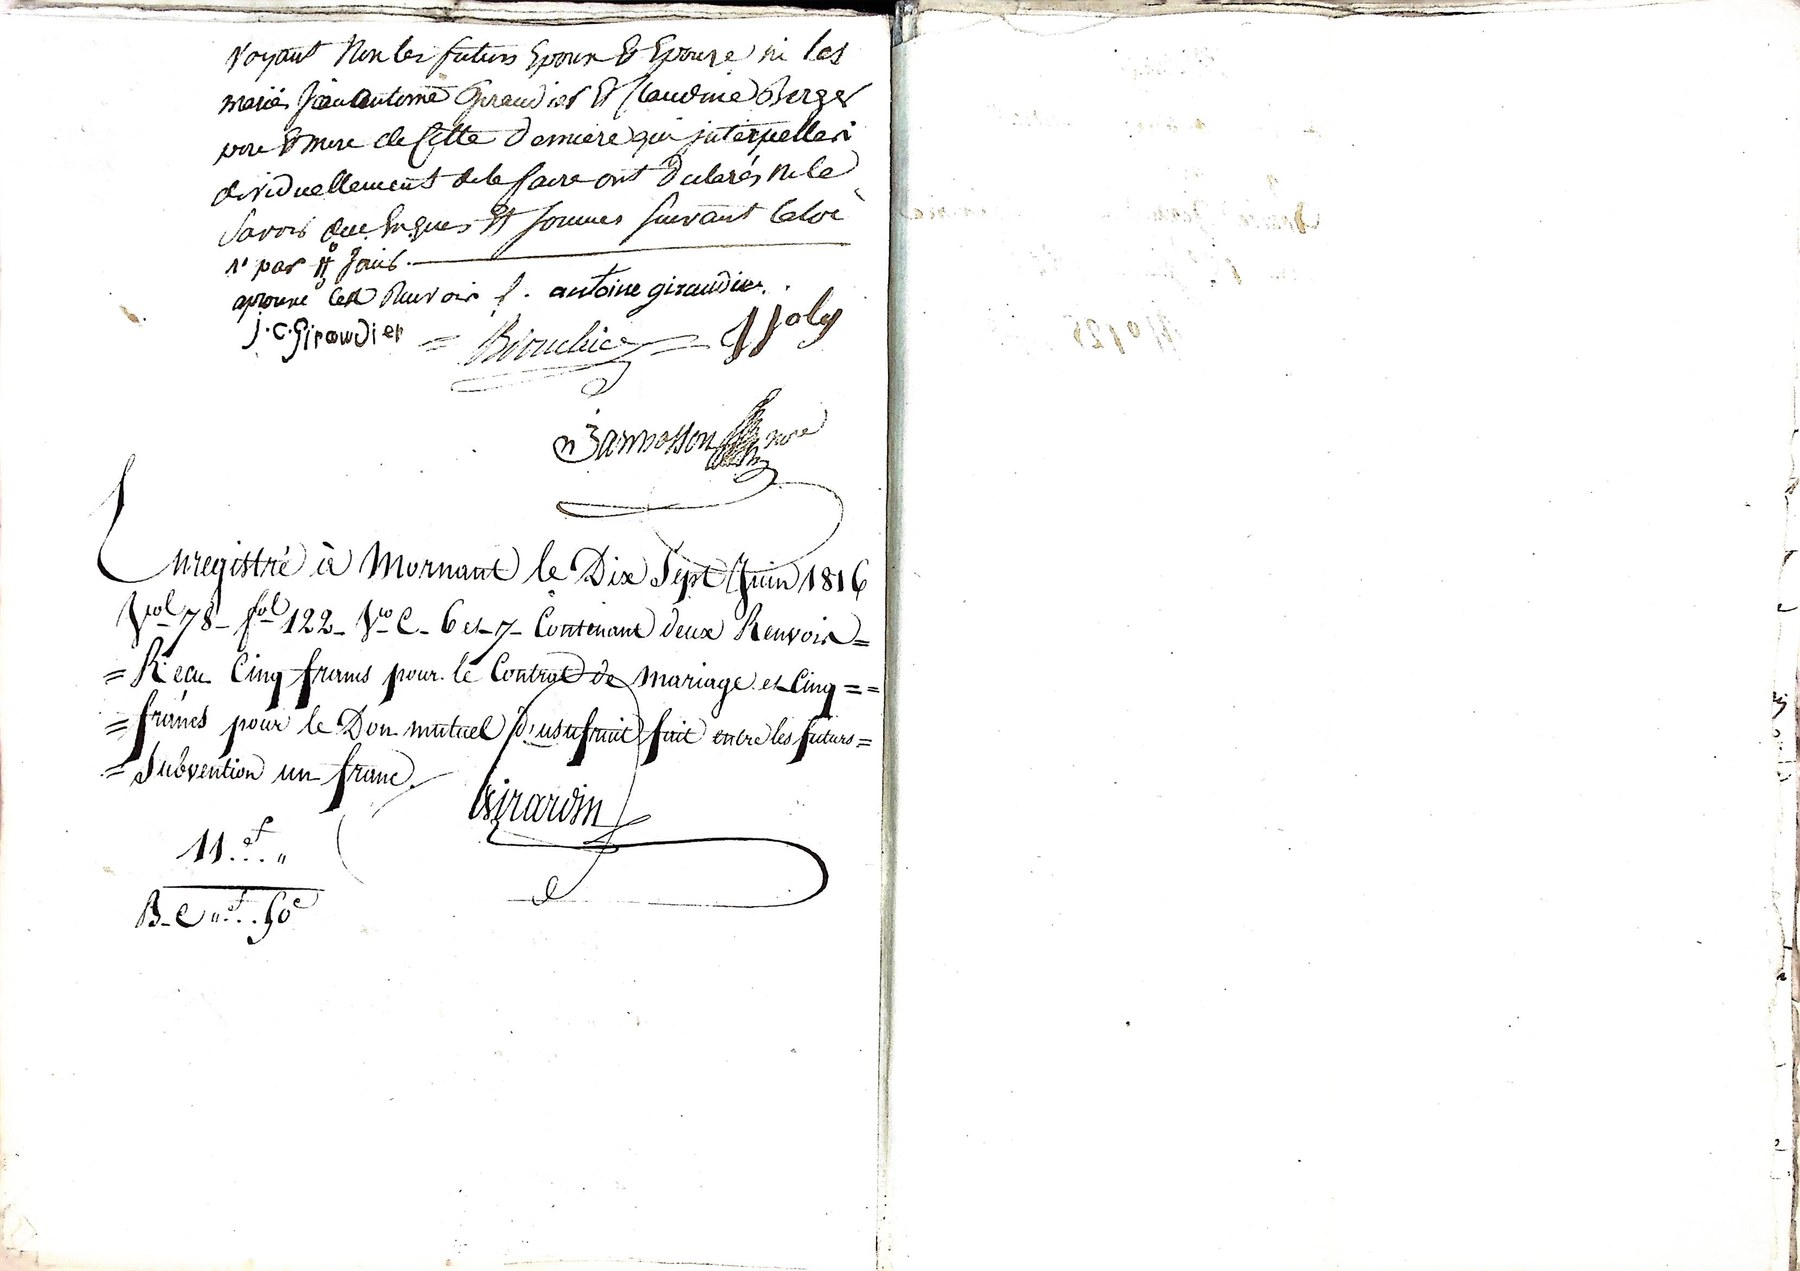 voyant Non les futurs Epoux Et Epouse ni les
mariés Jean antoine Giraudier Et Claudine Berger
pere Et mere de Cette Derniere qui interpellés in
dividuellement de le faire ont Déclarés Ne le
Savoir due Enques Et Sommés Suivant la loi
aprouvé Renvoir antoine giraudier
j. c. Giraudier
Joly
Enregistré à Mornant le Dix Sept Juin 1816
Vol 78 - fol 122 - Vo C. 6 et 7 - Contenant deux Renvois =
= Reçu Cinq francs pour le Contrat de mariage et Cinq = =
= francs pour le Don mutuel D'usufruit fait entre les futurs =
= Subvention un franc.
Girardin
11 f.. "